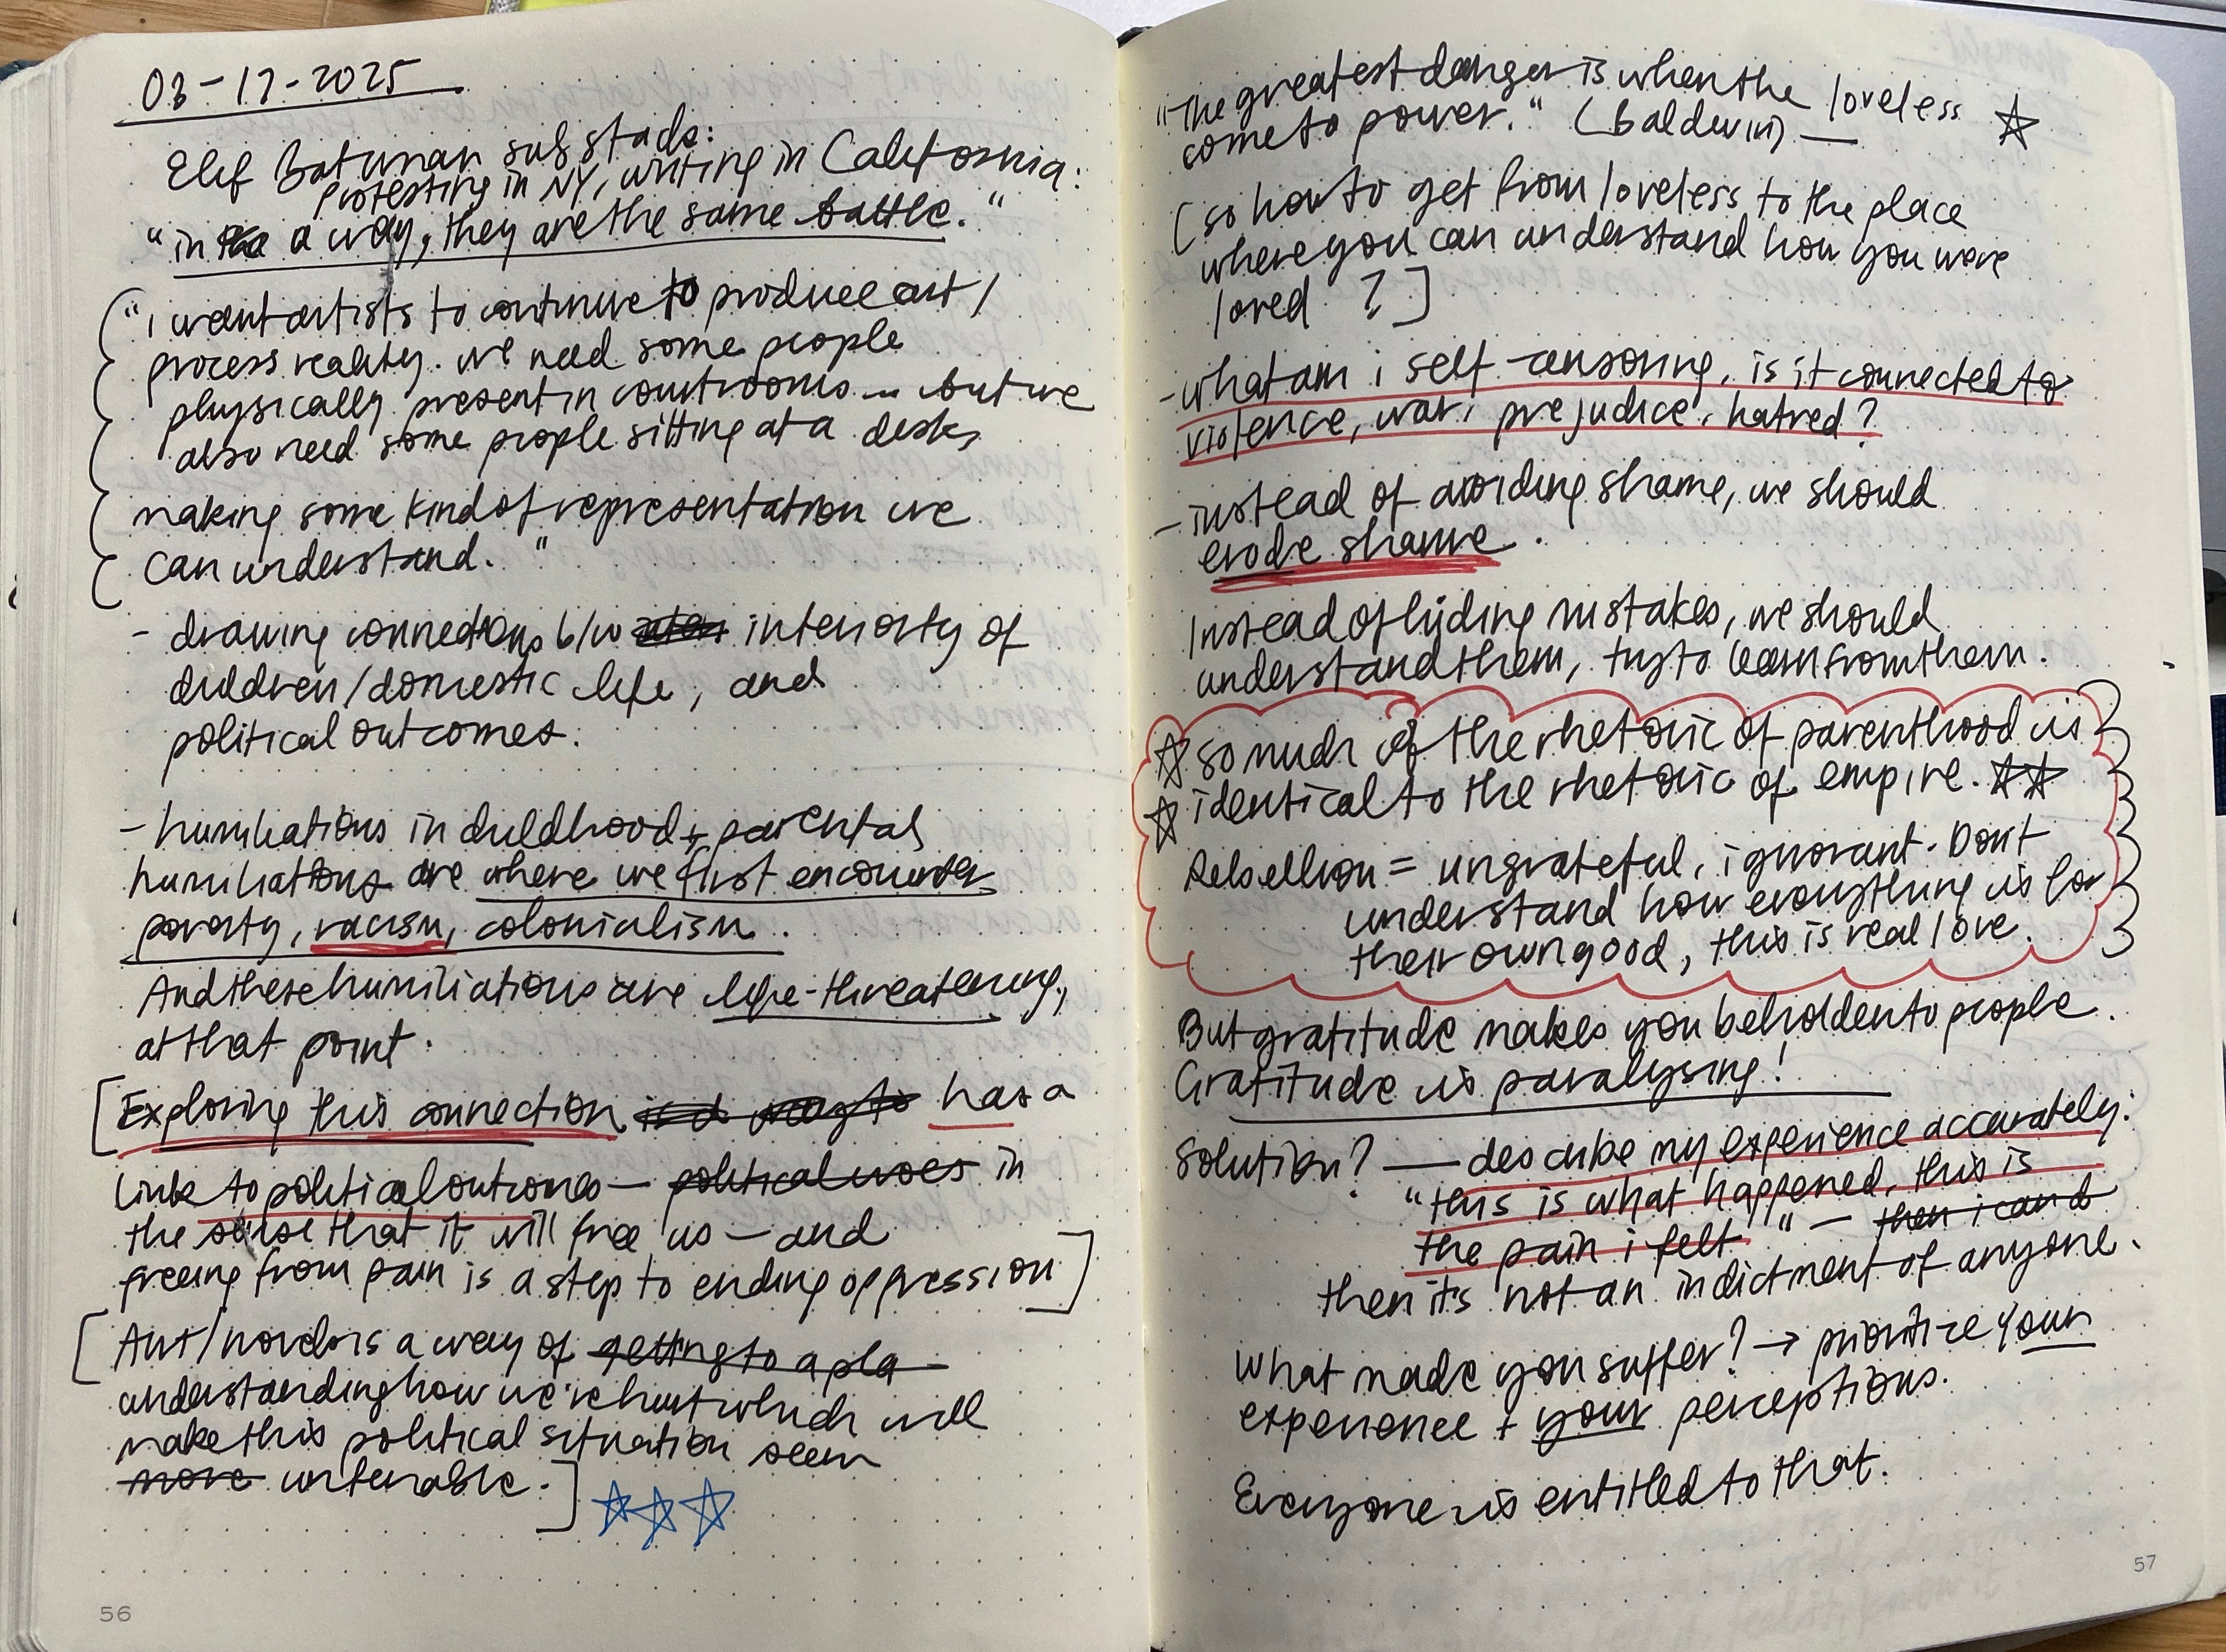 03-17-2025
Elif Batuman substack:
protesting in NY, writing in California:
"in a way, they are the same battle."
"i want artists to continue to produce art/
process reality. we need some people
physically present in courtrooms... but we
also need some people sitting at a desk,
making some kind of representation we
can understand."
- drawing connections b/w interiority of
children/domestic life, and
political outcomes.
- humiliations in childhood + parental
humiliations are where we first encounter
poverty, racism, colonialism.
And these humiliations are life-threatening,
at that point.
[Exploring this connection has a
link to political outcomes — political woes in
the sense that it will free us — and
freeing from pain is a step to ending oppression]
[Art/novels is a way of getting to a pla
understanding how we're hurt which will
make this political situation seem
more untenable.]
56
"The greatest danger is when the loveless
come to power." (Baldwin) —
(so how to get from loveless to the place
where you can understand how you were
loved ?]
- what am i self-censoring, is it connected to
violence, war, prejudice, hatred?
- instead of avoiding shame, we should
erode shame.
Instead of hiding mistakes, we should
understand them, try to learn from them.
so much of the rhetoric of parenthood is
identical to the rhetoric of empire.
Rebellion = ungrateful, ignorant. Don't
understand how everything is for
their own good, this is real love.
But gratitude makes you beholden to people.
Gratitude is paralysing!
Solution? — describe my experience accurately:
"this is what happened, this is
the pain i felt" — then i can b
then it's not an indictment of anyone.
What made you suffer? → prioritize your
experience + your perceptions.
Everyone is entitled to that.
57